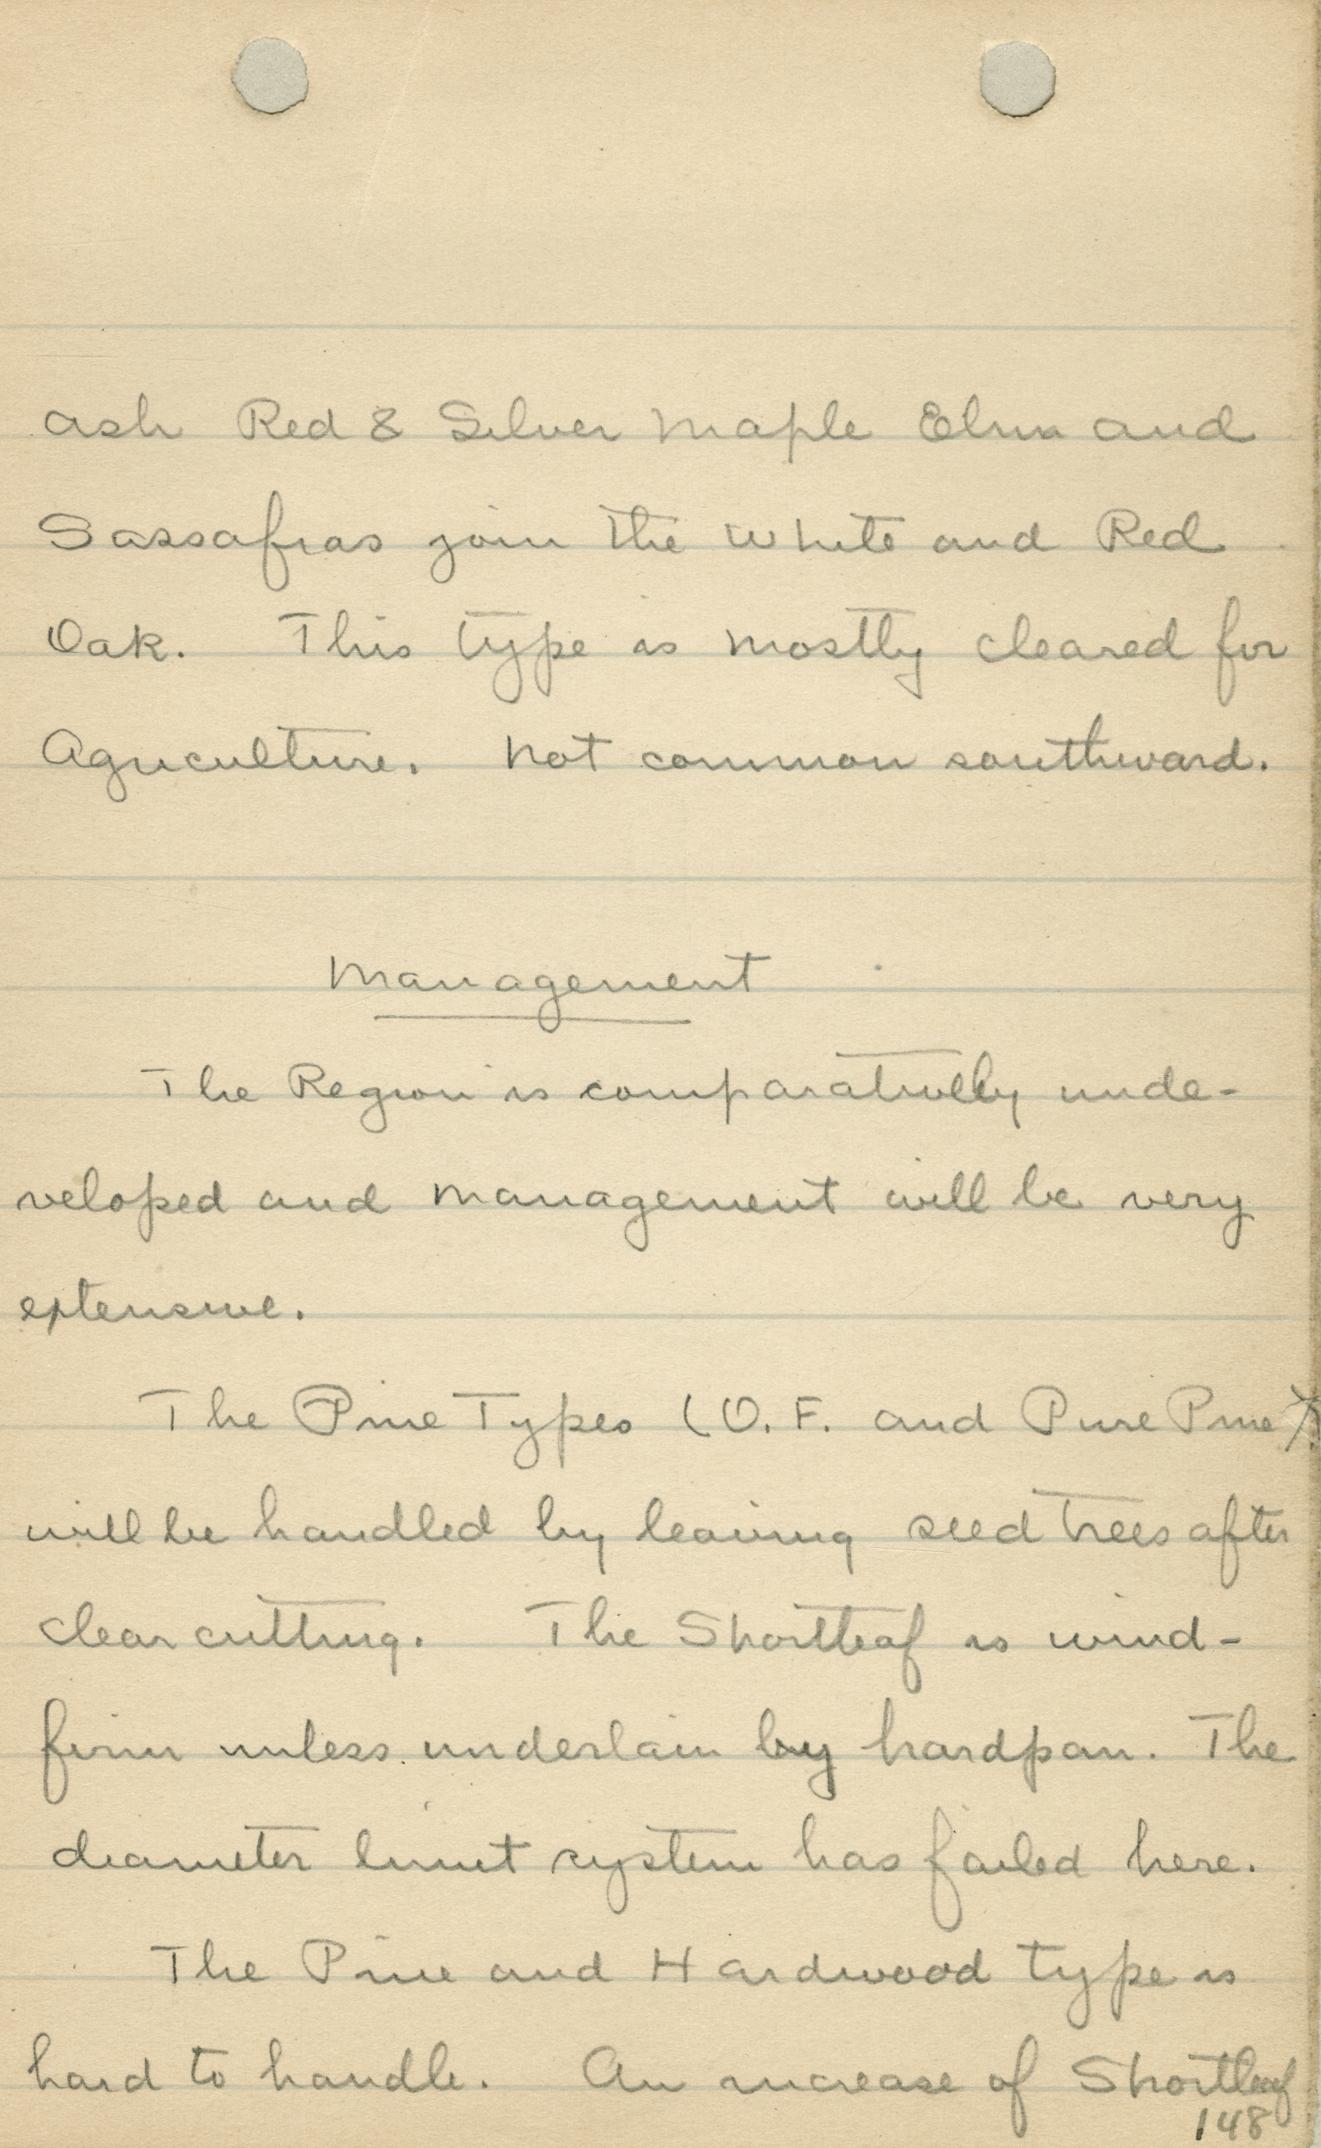 ash Red & Silver Maple Elm and
Sassafras join the White and Red
Oak. This type is mostly cleared for
Agriculture. Not common southward.
Management
The Region is comparatively unde-
veloped and management will be very
extensive.
The Pine Types (O.F. and Pure Pine)
will be handled by leaving seed trees after
clear cutting. The Shortleaf is wind-
firm unless underlain by hardpan. The
diameter limit system has failed here.
The Pine and Hardwood type is
hard to handle. An increase of Shortleaf
148